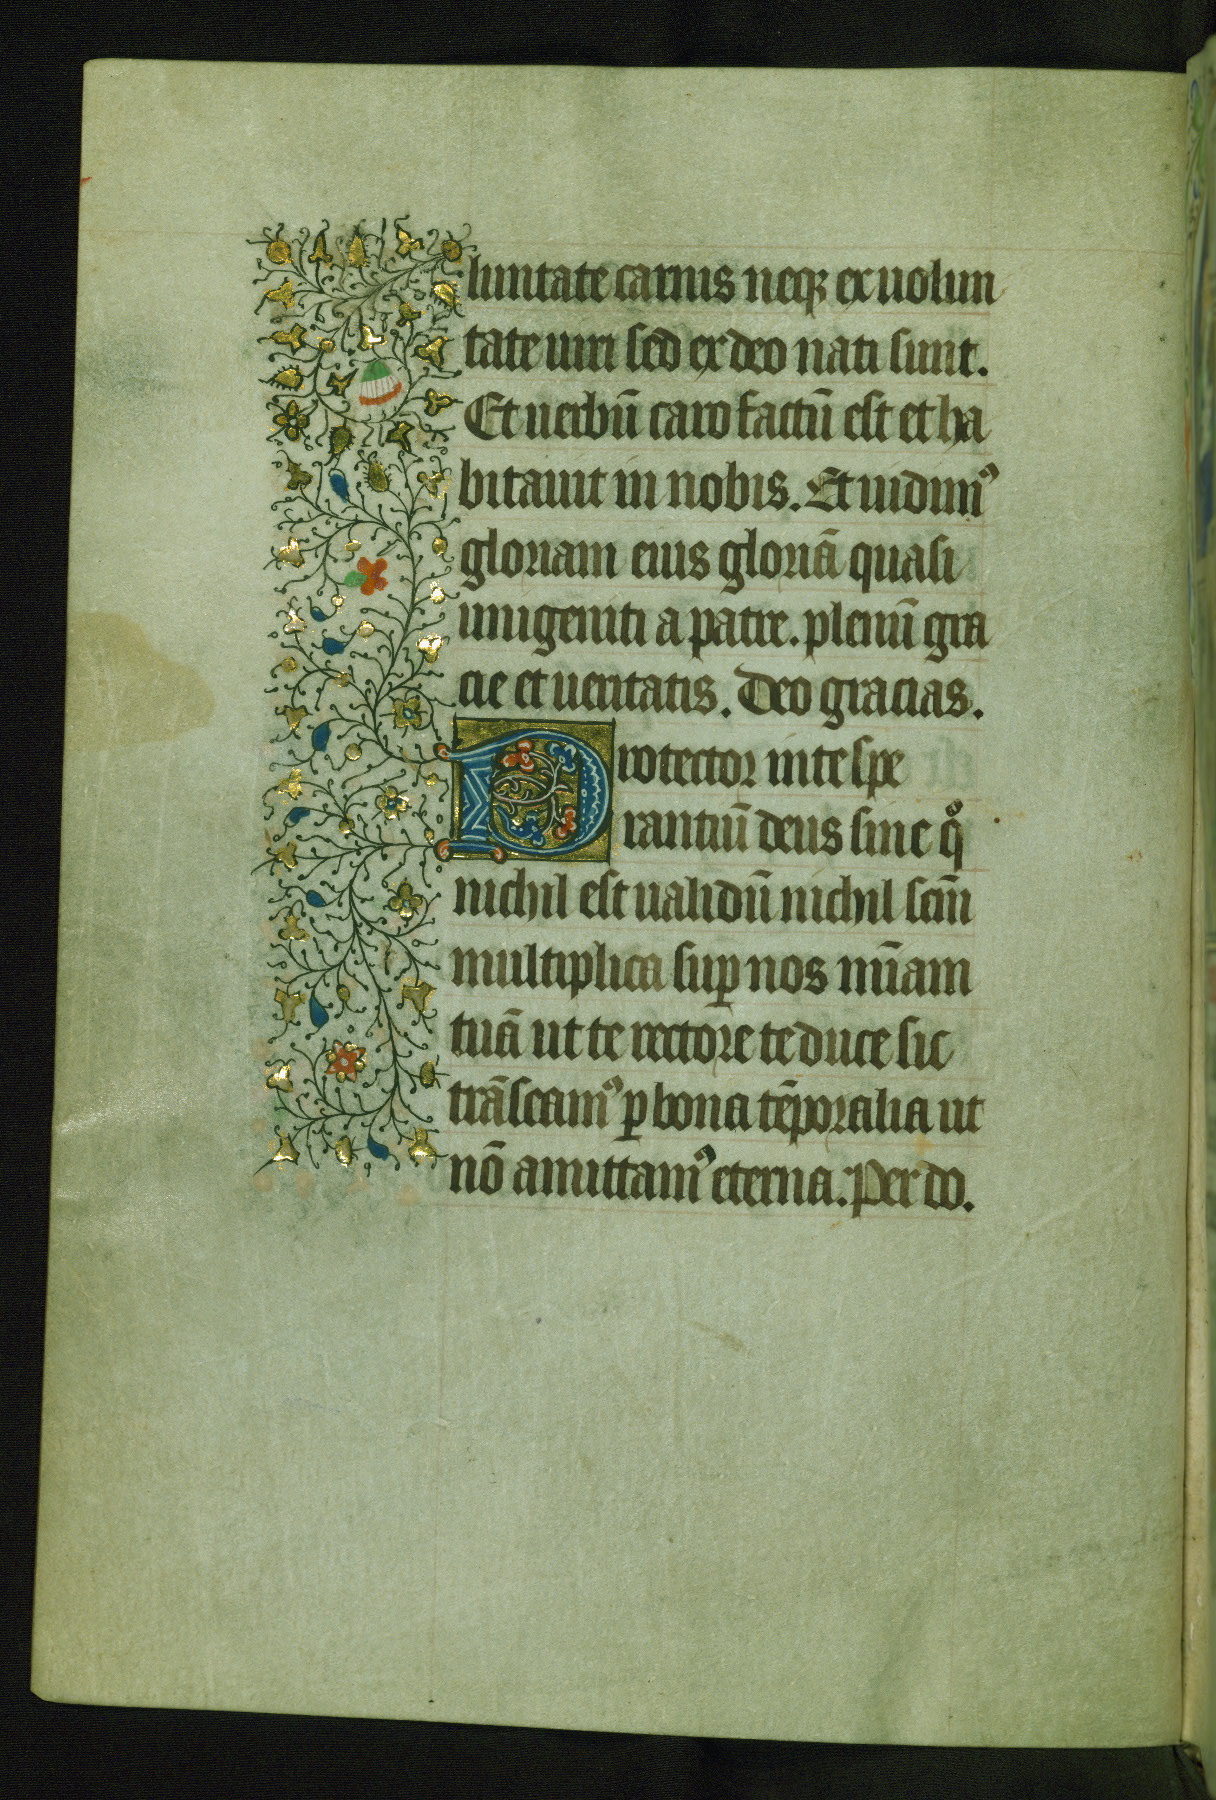 luntate carnis neqꝫ ex uolun
tate uiri sed ex deo nati sunt.
Et uerbū caro factū est et ha
bitauit in nobis. Et uidimꝰ
gloriam eius gloriā quasi
unigeniti a patre. plenū gra
cie et ueritatis. Deo gracias.
Protector in te spe
rantiū deus sine qͦ
nichil est ualidū nichil scm̄
multiplica suꝑ nos mīam
tuā ut te rectore te duce sic
trāseamꝰ ꝑ bona tēporalia ut
nō amittamꝰ eterna. Per do.